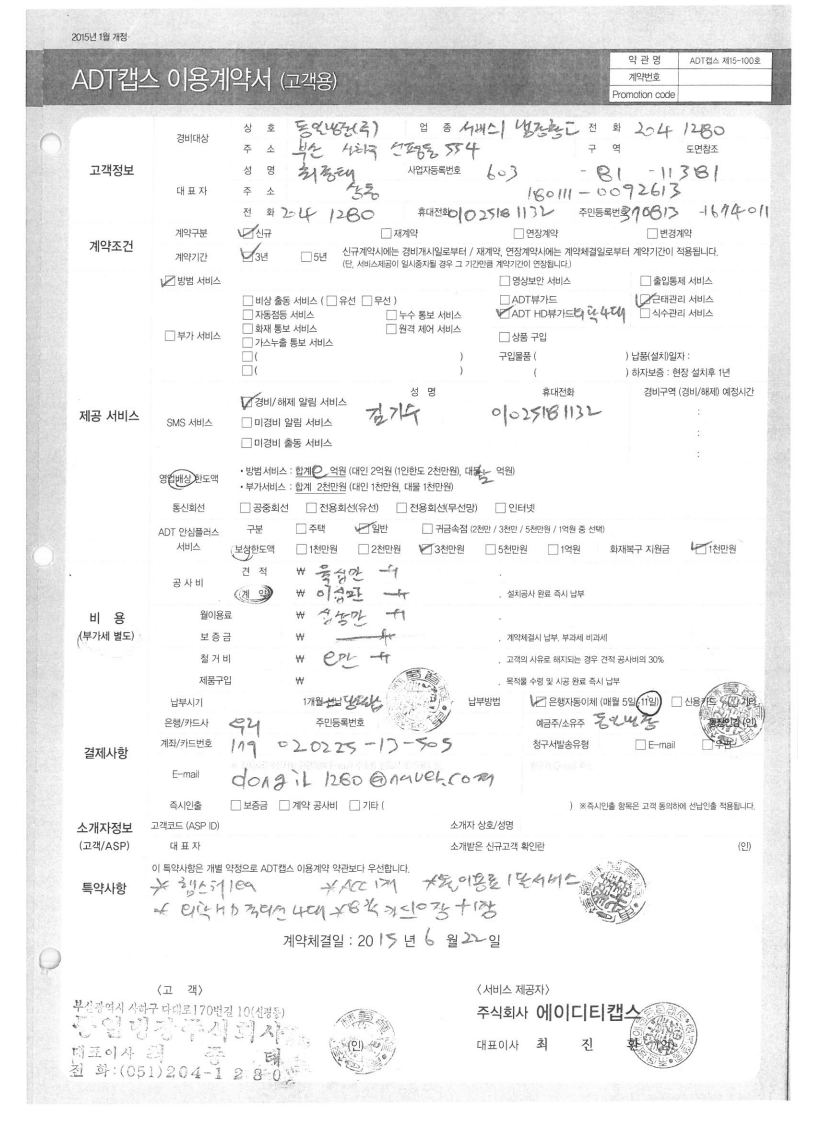 2015년 1월 개정
ADT캡스 이용계약서 (고객용)
약 관 명 ADT캡스 제15-100호
계약번호
Promotion code
고객정보
경비대상 상 호 업 종 전 화 204 1280
주 소 부산 554 구 역 도면참조
성 명 최종태 사업자등록번호 603 -81 -11381
대 표 자 주 소 상동 180111-0092613
전 화 204 1280 휴대전화 01025181132 주민등록번호
계약조건
계약구분 ☑신규 □재계약 □연장계약 □변경계약
계약기간 ☑3년 □5년 신규계약시에는 경비개시일로부터 / 재계약, 연장계약시에는 계약체결일로부터 계약기간이 적용됩니다.
(단, 서비스제공이 일시중지될 경우 그 기간만큼 계약기간이 연장됩니다.)
제공 서비스
☑방범 서비스 □영상보안 서비스 □출입통제 서비스
□비상 출동 서비스 ( □유선 □무선 ) □ADT뷰가드 ☑근태관리 서비스
□자동점등 서비스 □누수 통보 서비스 ☑ADT HD뷰가드 녹화4대 □식수관리 서비스
□부가 서비스 □화재 통보 서비스 □원격 제어 서비스 □상품 구입
□가스누출 통보 서비스
□( ) 구입물품 ( ) 납품(설치)일자 :
□( ) ( ) 하자보증 : 현장 설치후 1년
성 명 휴대전화 경비구역 (경비/해제) 예정시간
SMS 서비스 ☑경비/해제 알림 서비스 김기수 01025181132 :
□미경비 알림 서비스 :
□미경비 출동 서비스 :
영업배상 한도액 • 방범서비스 : 합계 억원 (대인 2억원 (1인한도 2천만원), 대물 억원)
• 부가서비스 : 합계 2천만원 (대인 1천만원, 대물 1천만원)
통신회선 □공중회선 □전용회선(유선) □전용회선(무선망) □인터넷
ADT 안심플러스 서비스 구분 □주택 ☑일반 □귀금속점 (2천만 / 3천만 / 5천만원 / 1억원 중 선택)
보상한도액 □1천만원 □2천만원 ☑3천만원 □5천만원 □1억원 화재복구 지원금 ☑1천만원
비 용
(부가세 별도)
공 사 비 견 적 ₩ 육십만
계 약 ₩ 이십만 . 설치공사 완료 즉시 납부
월이용료 ₩ 십육만
보 증 금 ₩ . 계약체결시 납부, 부과세 비과세
철 거 비 ₩ . 고객의 사유로 해지되는 경우 견적 공사비의 30%
제품구입 ₩ . 목적물 수령 및 시공 완료 즉시 납부
결제사항
납부시기 1개월 선납 납부방법 ☑은행자동이체 (매월 5일, 11일) □신용카드 □기타
은행/카드사 우리 주민등록번호 예금주/소유주 동일냉동 통장인감 (인)
계좌/카드번호 119 020225-13-505 청구서발송유형 □E-mail □우편
E-mail dongil1280@naver.com
즉시인출 □보증금 □계약 공사비 □기타 ( ) ※즉시인출 항목은 고객 동의하에 선납인출 적용됩니다.
소개자정보
(고객/ASP)
고객코드 (ASP ID) 소개자 상호/성명
대 표 자 소개받은 신규고객 확인란 (인)
특약사항
이 특약사항은 개별 약정으로 ADT캡스 이용계약 약관보다 우선합니다.
*캡스텍1ea *ACC 1개 *월이용료 1달서비스
계약체결일 : 2015년 6 월 22일
〈고 객〉
부산광역시 사하구 다대로170번길 10(신평동)
동일냉장주식회사
대표이사 최 종 태 (인)
전 화:(051)204-1280
〈서비스 제공자〉
주식회사 에이디티캡스
대표이사 최 진 환 (인)